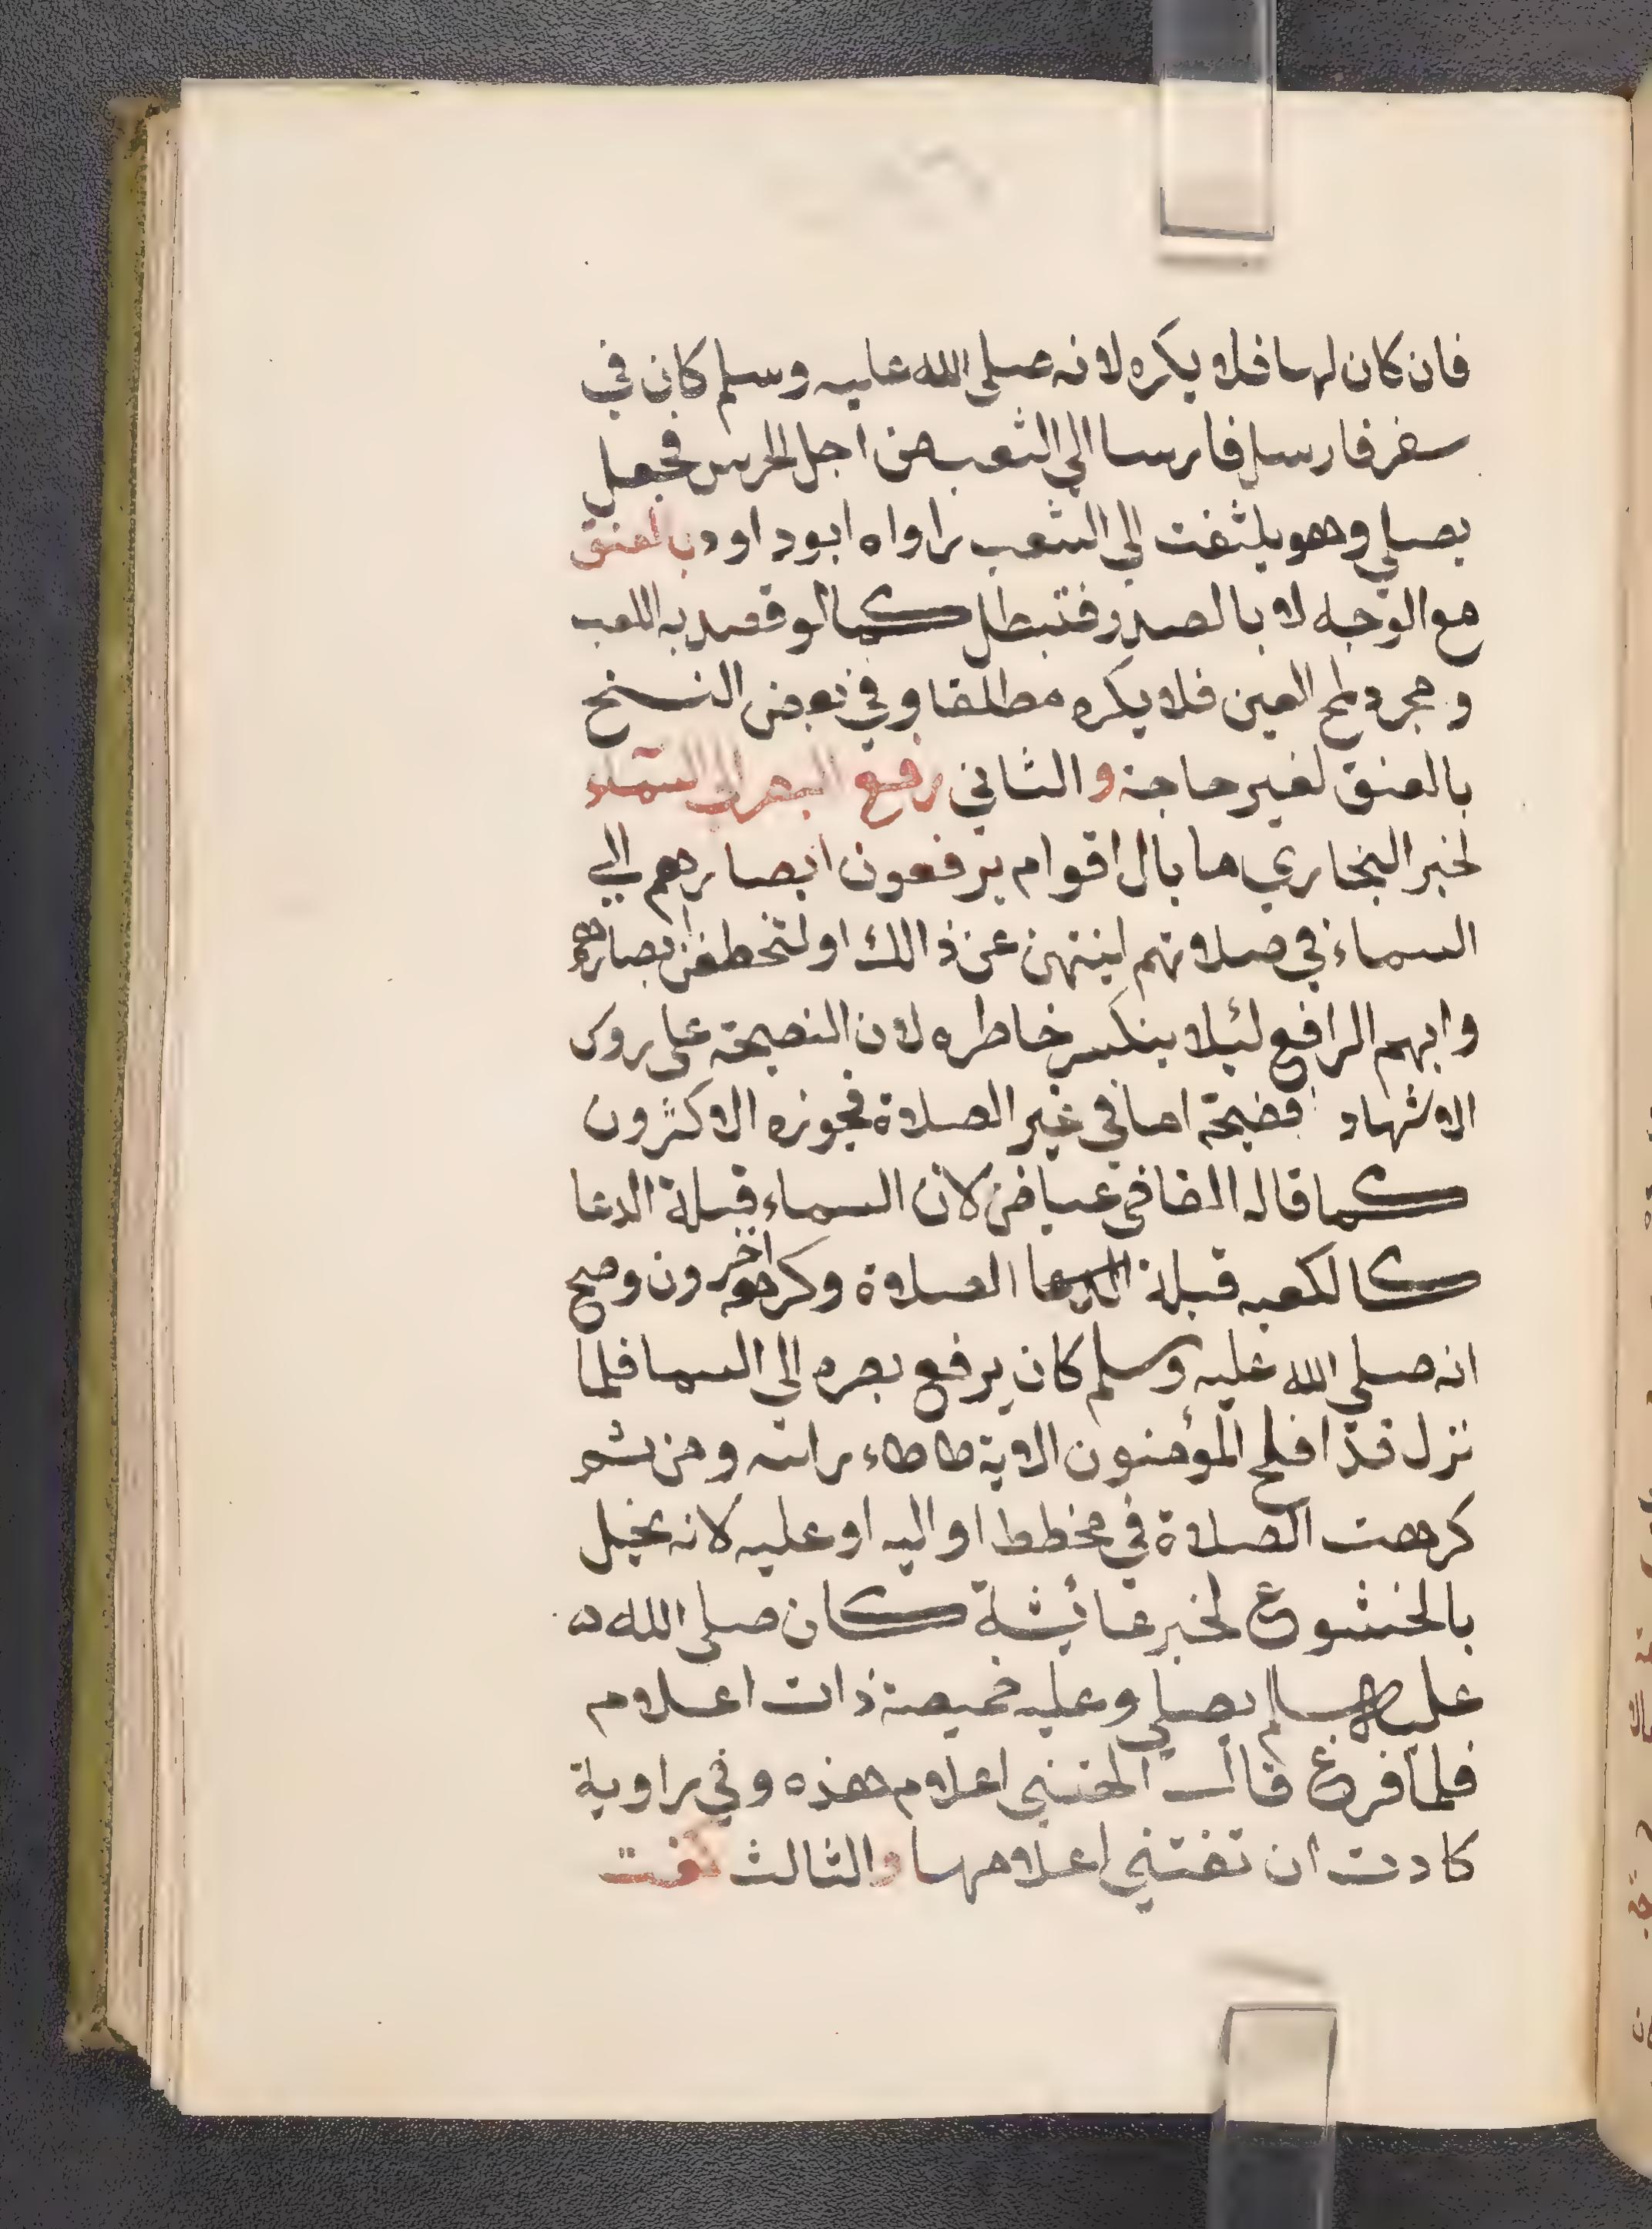 فان كان لها فلا يكره لانه صلى الله عليه وسلم كان في
سفر فارسل فارسا الى الشعب من اجل الحرس فجعل
يصلي وهو يلتفت الى الشعب راواه ابو داود بالعنق
مع الوجه لا بالصدر فتبطل كما لو قصد به اللعب
ومجرد لمح العين فلا يكره مطلقا وفي بعض النسخ
بالعنق لغير حاجة والثاني رفع البصر الى السماء
لخبر البخاري ما بال اقوام يرفعون ابصارهم الي
السماء في صلاتهم لينتهن عن ذالك او لتخطفن ابصارهم
وابهم الرافع لئلا ينكسر خاطره لان النصيحة على روس
الاشهاد فضيحة اما في غير الصلاة فجوزه الاكثرون
كما قاله القاضي عياض لان السماء قبلة الدعا
كالكعبه قبلة الصلاة وكرهه اخرون وصح
انه صلى الله عليه وسلم كان يرفع بصره الى السما فلما
نزل قد افلح المؤمنون الاية طاطاء راسه ومن ثم
كرهت الصلاة في مخطط او اليه او عليه لانه يخل
بالخشوع لخبر عائشة كان صلى الله
عليه وسلم يصلي وعليه خميصة ذات اعلام
فلما فرغ قال الهتني اعلام هذه وفي راوية
كادت ان تفتني اعلامها والثالث كفت